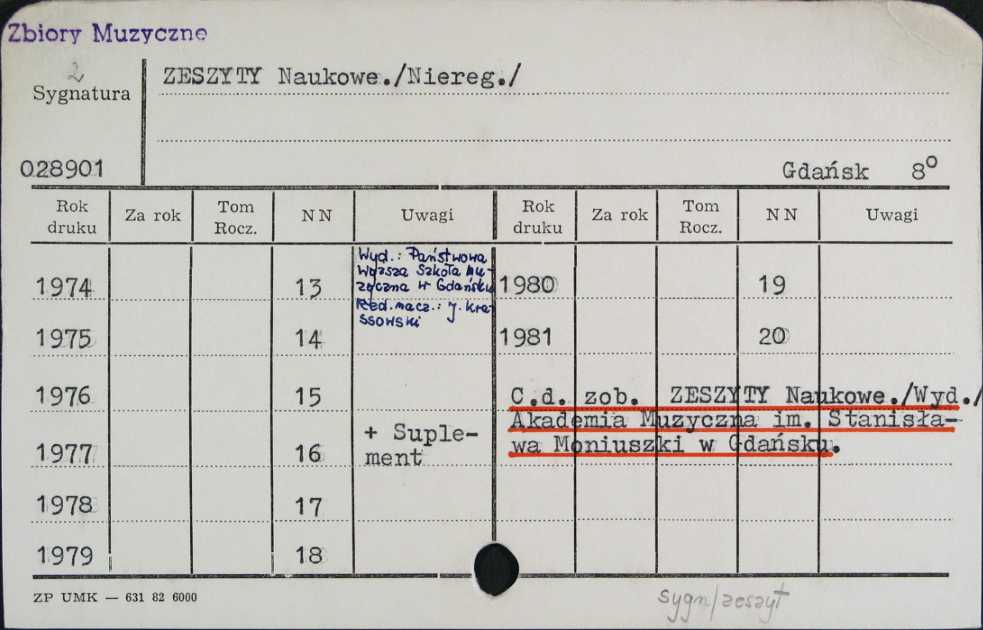 Zbiory Muzyczne
2
Sygnatura
ZESZYTY Naukowe./Niereg./
028901
Gdańsk 8⁰
Rok druku Za rok Tom Rocz. NN Uwagi Rok druku Za rok Tom Rocz. NN Uwagi
Wyd.: Państwowa
Wyższa Szkoła Mu-
zyczna w Gdańsku
Red.nacz.: J. Kra-
ssowski
1974 13 1980 19
1975 14 1981 20
1976 15
C.d. zob. ZESZYTY Naukowe./Wyd./
Akademia Muzyczna im. Stanisła-
wa Moniuszki w Gdańsku.
1977 16 + Suple-
ment
1978 17
1979 18
ZP UMK — 631 82 6000
sygn/zeszyt